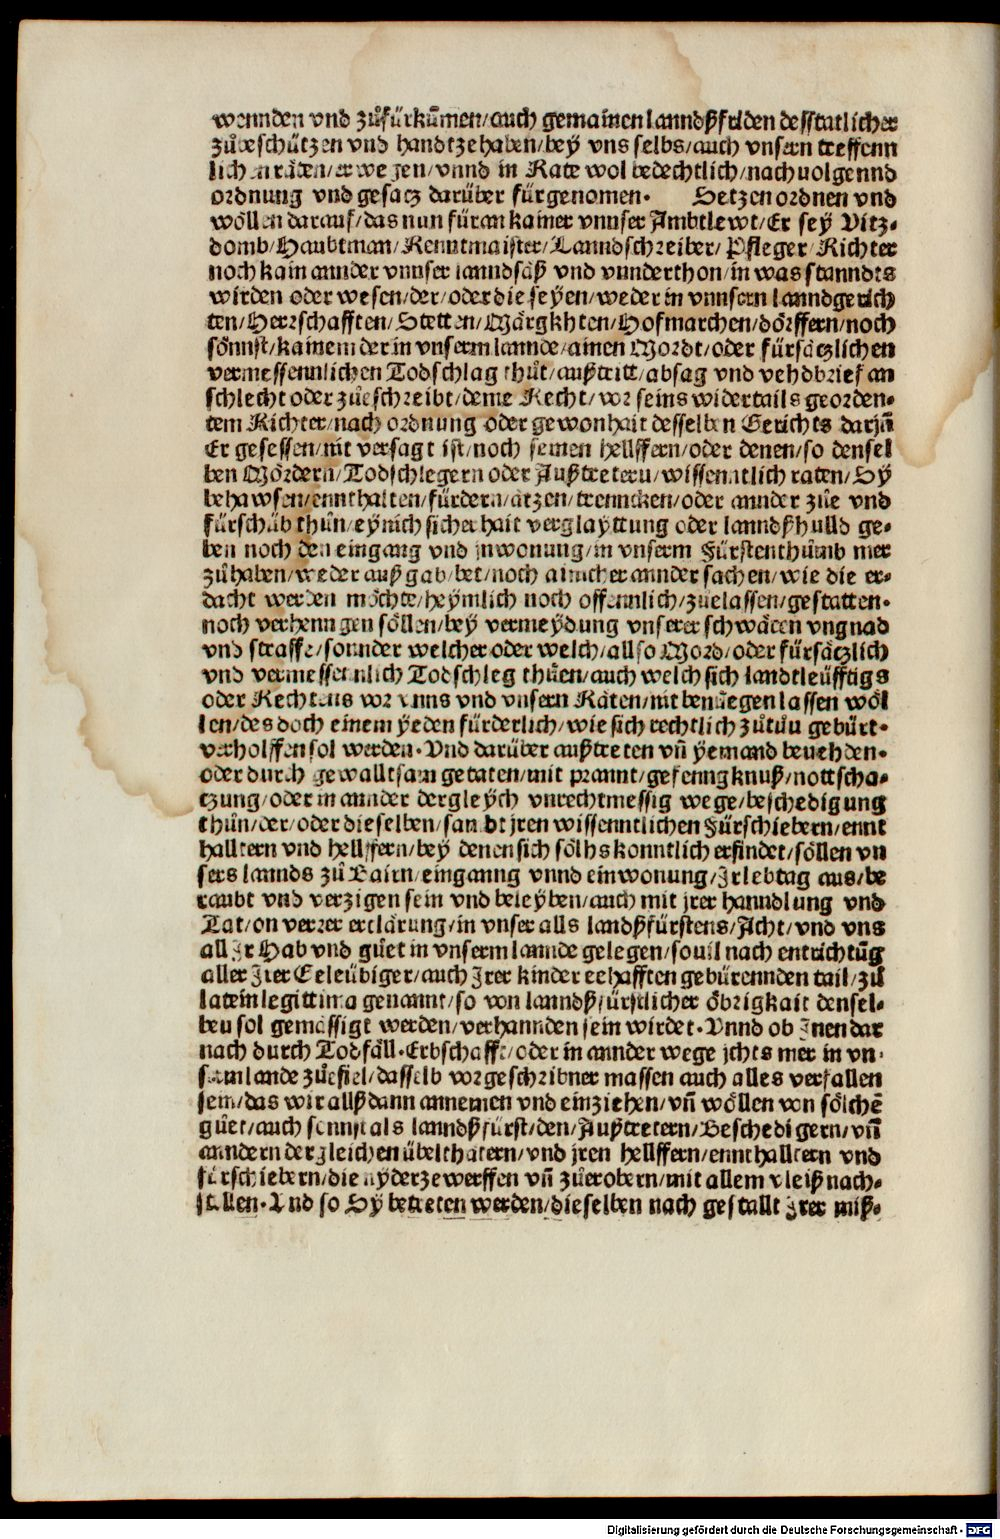 wennden vnd zůfürkūmen/auch gemainen lanndßfriden desstatlicher
zůbeschützen vnd handtzehaben/bey vns selbs/auch vnsern treffenn
lichen räten/erwegen/vnnd in Rate wol bedechtlich/nachuolgennd
ordnung vnd gesatz darüber fürgenomen. Setzen ordnen vnd
wöllen darauf/das nun füran kainer vnnser Ambtlewt/Er sey Vitz-
domb/Haubtman/Renntmaister/Lanndschreiber/Pfleger/Richter
noch kain annder vnnser lanndsäß vnd vnnderthon/in was stanndes
wirden oder wesen/der/oder die seyen/weder in vnnsern lanndgerich
ten/Herrschafften/Stetten/Märgkhten/Hofmarchen/dörffern/noch
sönnst/kainem der in vnserm lannde/ainen Mordt/oder fürsätzlichen
vermessennlichen Todschlag thůt/außtritt/absag vnd vehdbrief an
schlecht oder zůeschreibt/deme Recht/vor seins widertails georden-
tem Richter/nach ordnung oder gewonhait desselben Gerichts darjn̄
Er gesessen/nit versagt ist/noch seinen hellffern/oder denen/so densel
ben Mördern/Todschlegern oder Außtretern/wissenntlich raten/Sy
behawsen/ennthalten/fürdern/ätzen/trenncken/oder annder zůe vnd
fürschůb thůn/eynich sicherhait verglayttung oder lanndßhulld ge-
ben noch den eingang vnd jnwonung/in vnserm Fürstenthůmb mer
zůhaben/weder auß gab/bet/noch ainicher annder sachen/wie die er-
dacht werden möchte/heymlich noch offennlich/zůelassen/gestatten.
noch verhenngen söllen/bey vermeydung vnserer schwären vngnad
vnd straffe/sonnder welcher oder welch/allso Mord/oder fürsätzlich
vnd vermessennlich Todschleg thůen/auch welch sich landtleüfftigs
oder Rechtens vor vnns vnd vnsern Räten/nit benůegen lassen wöl
len/des doch einem yeden fürderlich/wie sich rechtlich zůtůn gebürt.
verholffen sol werden. Vnd darüber außtreten vn̄ yemand beuehden.
oder durch gewalltsam getaten/mit prannt/gefenngknuß/nottscha-
tzung/oder in annder dergleych vnrechtmessig wege/beschedigung
thůn/der/oder dieselben/sambt jren wissenntlichen Fürschiebern/ennt
halltern vnd hellffern/bey denen sich sölhs konntlich erfindet/söllen vn
sers lannds zů Bairn/einganng vnnd einwonung/Jr lebtag aus/be
raubt vnd verzigen sein vnd beleyben/auch mit jrer hanndlung vnd
Tat/on verrer erclärung/in vnser alls landßfürstens/Acht/vnd vns
all Jr Hab vnd gůet in vnserm lannde gelegen/souil nach entrichtūg
aller Jrer Geleübiger/auch Jrer kinder eehafften gebürennden tail/zů
latein legittima genannt/so von lanndßfürstlicher öbrigkait densel-
ben sol gemässigt werden/verhannden sein wirdet. Vnnd ob Jnen dar
nach durch Todfäll. Erbschafft/oder in annder wege jchts mer in vn-
serm lande zůefiel/dasselb vorgeschribner massen auch alles verfallen
sein/das wir allßdann annemen vnd einziehen/vn̄ wöllen von sölchē
gůet/auch sonnst als lanndßfürst/den/Außtretern/Beschedigern/vn̄
anndern dergleichen übelthätern/vnd jren hellffern/ennthalltern vnd
fürschiebern/die nyderzewerffen vn̄ zůerobern/mit allem vleiß nach-
stellen. Vnd so Sy betreten werden/dieselben nach gestallt Jrer miß-
Digitalisierung gefördert durch die Deutsche Forschungsgemeinschaft - DFG